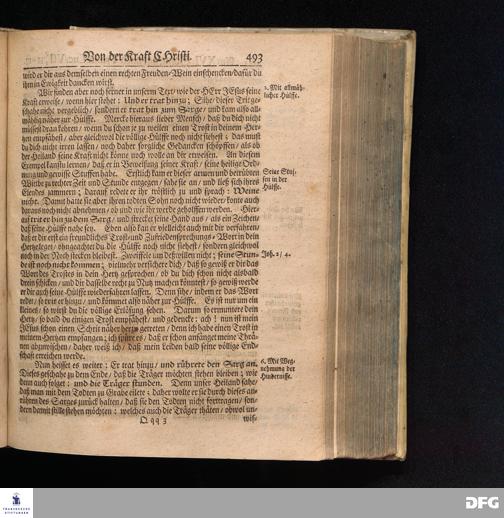 Von der Kraft CHristi. 493
wird er dir aus demselben einen rechten Freuden-Wein einschencken/dafür du
ihm in Ewigkeit dancken wirst.
Wir finden aber noch ferner in unserm Text/ wie der HErr JEsus seine
Kraft erweise/ wenn hier stehet: Und er trat hinzu; Sihe/ dieser Trit ge-
schahe nicht vergeblich/ sondern er trat hin zum Sarge/ und kam also all-
mählig näher zur Hülffe. Mercke hieraus lieber Mensch/ daß du dich nicht
müssest dran kehren/ wenn du schon je zu weilen einen Trost in deinem Her-
tzen empfähest/ aber gleichwol die völlige Hülffe noch nicht siehest; das must
du dich nicht irren lassen/ noch daher sorgliche Gedancken schöpffen/ als ob
der Heiland seine Kraft nicht könne noch wolle an dir erweisen. An diesem
Exempel kanstu lernen/ daß er in Beweisung seiner Kraft/ seine heilige Ord-
nung und gewisse Stuffen habe. Erstlich kam er dieser armen und betrübten
Witbe zu rechter Zeit und Stunde entgegen/ sahe sie an/ und ließ sich ihres
Elendes jammern; darauf redete er ihr tröstlich zu und sprach: Weine
nicht. Damit hatte sie aber ihren todten Sohn noch nicht wieder/ konte auch
daraus noch nicht abnehmen/ ob und wie ihr werde geholffen werden. Hier-
auf trit er hin zu dem Sarg/ und strecket seine Hand aus/ als ein Zeichen/
daß seine Hülffe nahe sey. Eben also kan er vielleicht auch mit dir verfahren/
daß er dir erst ein freundliches Trost- und Zufriedensprechungs-Wort in dein
Hertz leget/ ohngeachtet du die Hülffe noch nicht siehest/ sondern gleichwol
noch in der Noth stecken bleibest. Zweiffele um deßwillen nicht; seine Stun-
de ist noch nicht kommen; vielmehr versichere dich/ daß so gewiß er dir das
Wort des Trostes in dein Hertz gesprochen/ ob du dich schon nicht alsbald
drein schicken/ und dir dasselbe recht zu Nutz machen köntest/ so gewiß werde
er dir auch seine Hülffe wiederfahren lassen. Denn sihe/ indem er das Wort
redet/ so trit er hinzu/ und kömmet also näher zur Hülffe. Es ist nur um ein
kleines/ so wirst du die völlige Erlösung sehen. Darum so ermuntere dein
Hertz/ so bald du einigen Trost empfähest/ und gedencke: ach! nun ist mein
JEsus schon einen Schrit näher herzu getreten/ denn ich habe einen Trost in
meinem Hertzen empfangen; ich spüre es/ daß er schon anfänget meine Thrä-
nen abzuwischen/ daher weiß ich/ daß mein Leiden bald seine völlige End-
schaft erreichen werde.
Nun heisset es weiter: Er trat hinzu/ und rührete den Sarg an.
Dieses geschahe zu dem Ende/ daß die Träger möchten stehen bleiben; wie
denn auch folget: und die Träger stunden. Denn unser Heiland sahe/
daß man mit dem Todten zu Grabe eilete; daher wolte er sie durch dieses an-
rühren des Sarges zurück halten/ daß sie den Todten nicht forttragen/ son-
dern damit stille stehen möchten: welches auch die Träger thäten/ obwol un-
Q qq 3
wis-
Mit allmäh-
licher Hülffe.
Seine Stuf-
fen in der
Hülffe.
Joh. 2/ 4.
6. Mit Weg-
nehmung der
Hindernisse.
FRANCKESCHE
STIFTUNGEN
DFG